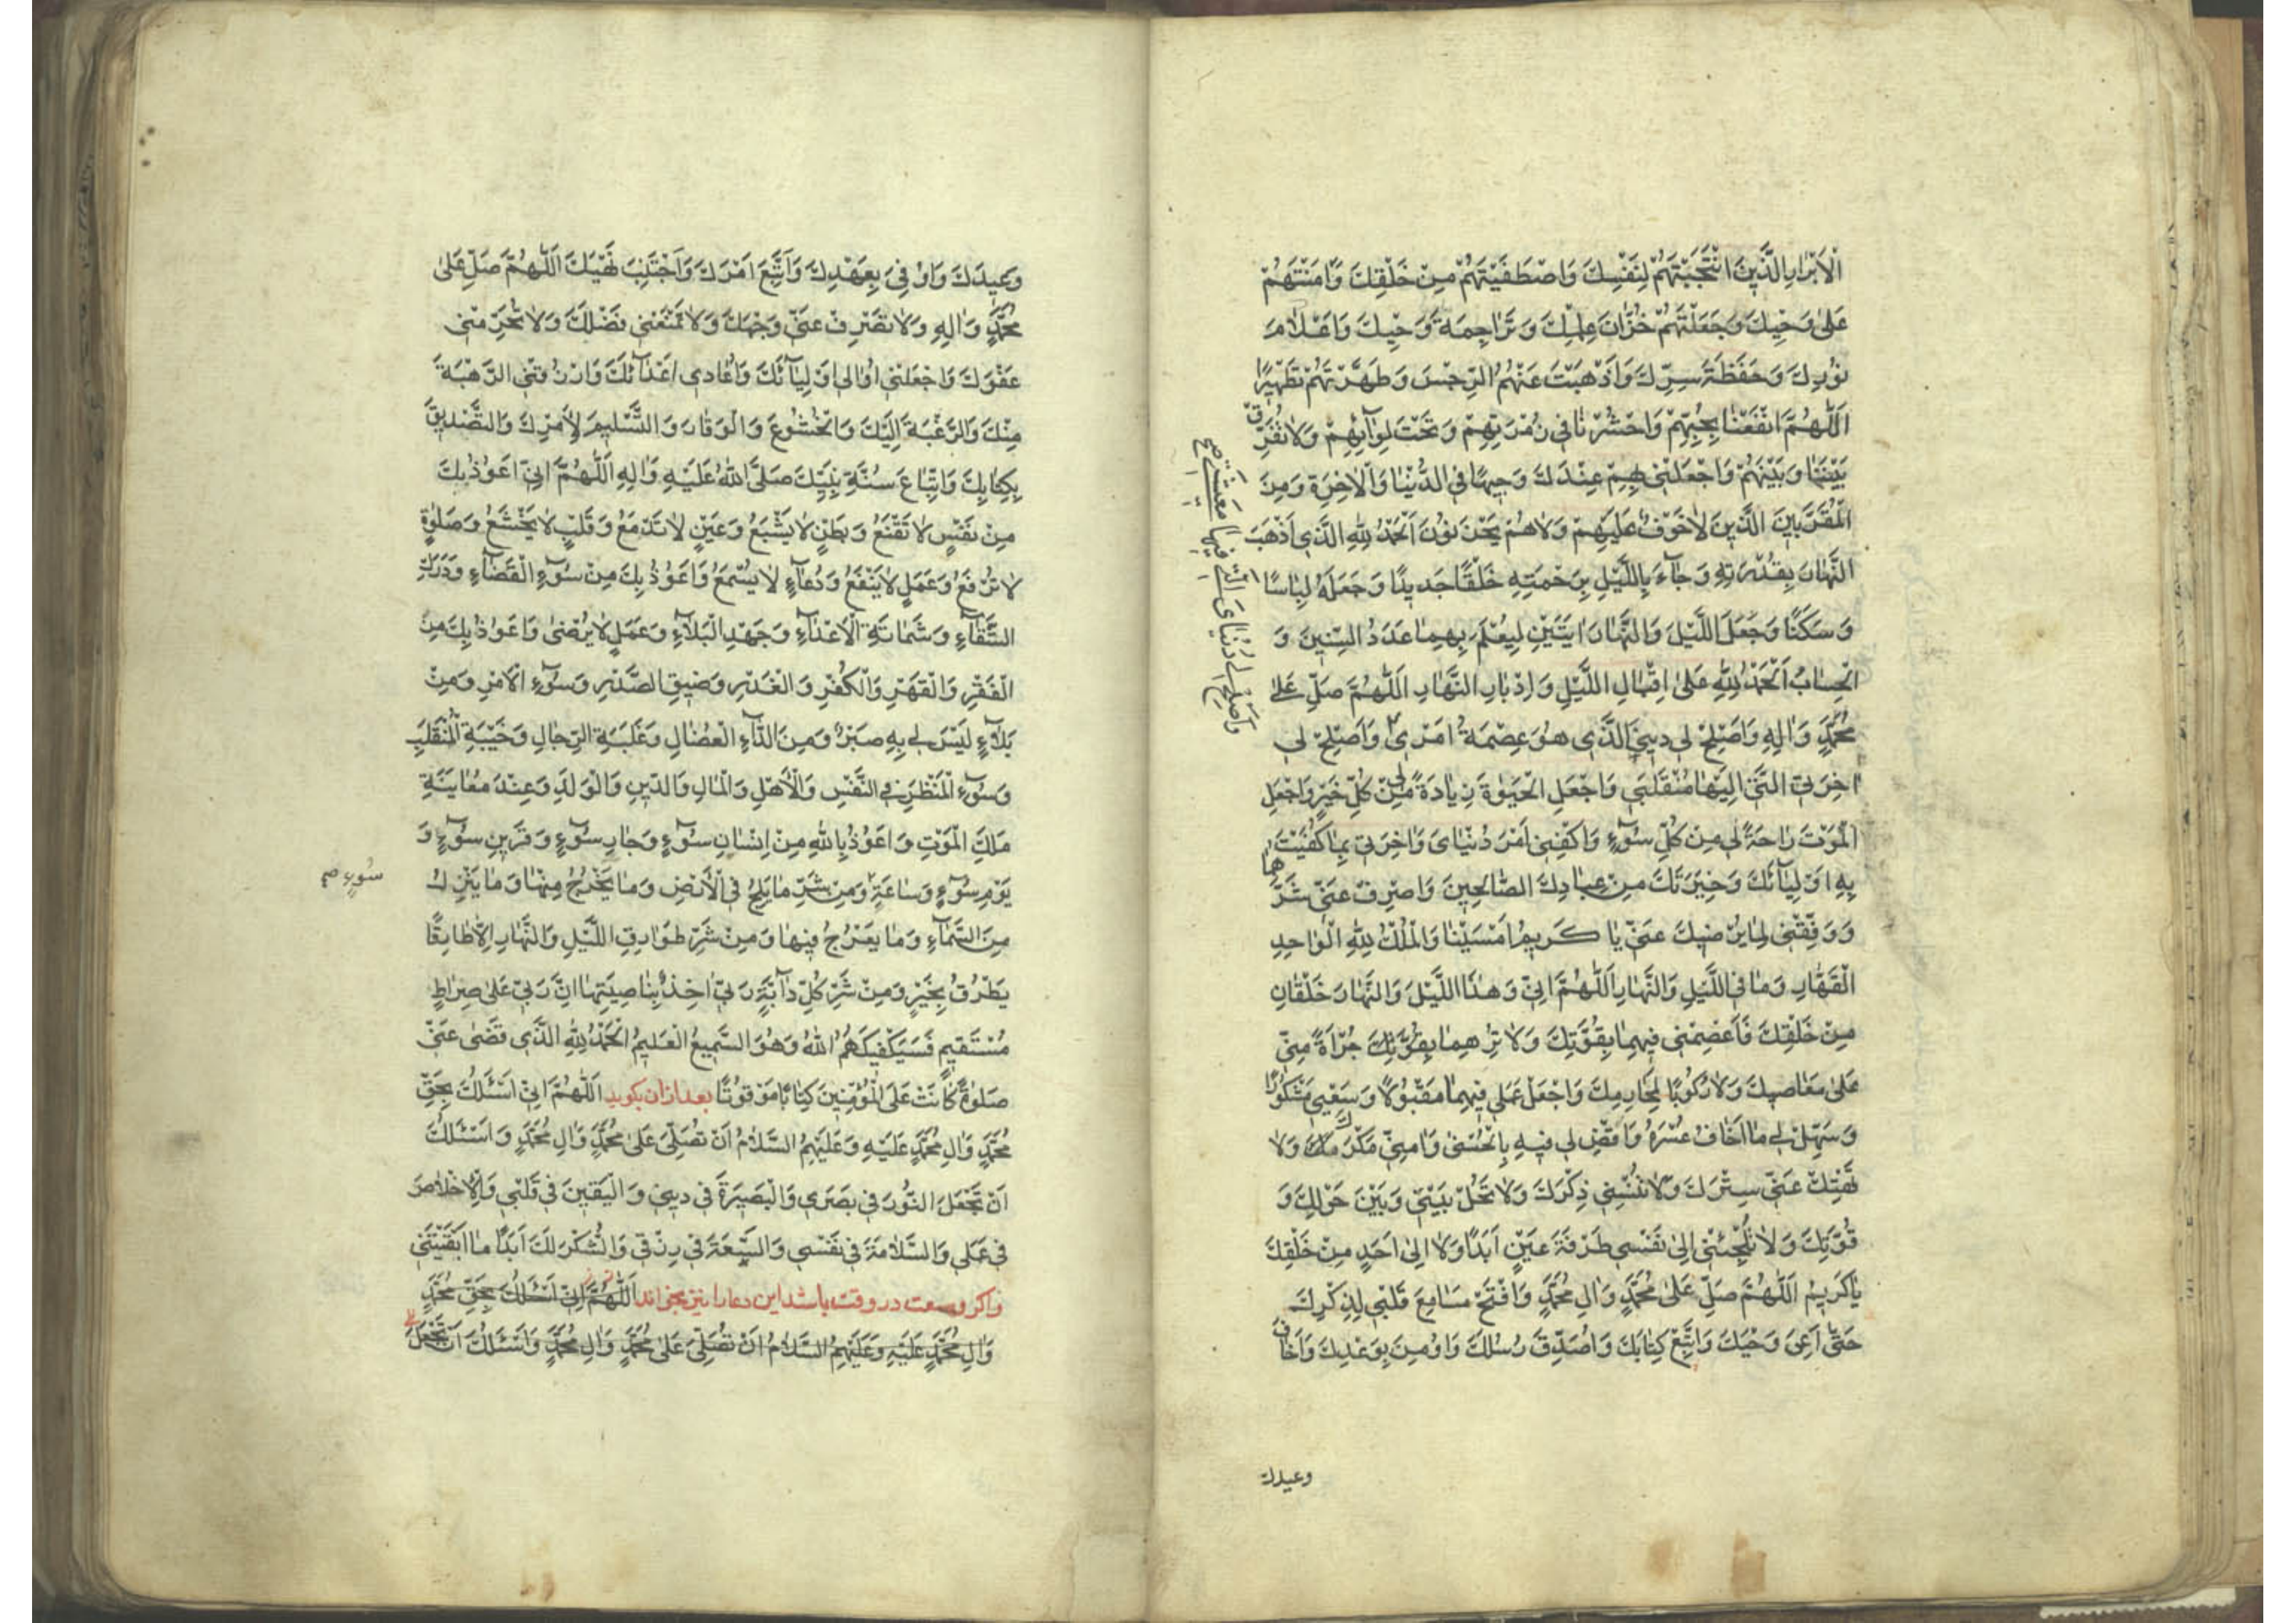 الْاَبْرَارِ الَّذِينَ انْتَجَبْتَهُمْ لِنَفْسِكَ وَاصْطَفَيْتَهُمْ مِنْ خَلْقِكَ وَآمَنْتَهُمْ
عَلىٰ وَحْيِكَ وَجَعَلْتَهُمْ خُزَّانَ عِلْمِكَ وَتَرَاجِمَةَ وَحْيِكَ وَاَعْلَامَ
نُورِكَ وَحَفَظَةَ سِرِّكَ وَاَذْهَبْتَ عَنْهُمُ الرِّجْسَ وَطَهَّرْتَهُمْ تَطْهِيرًا
اَللّٰهُمَّ انْفَعْنَا بِحُبِّهِمْ وَاحْشُرْنَا فِي زُمْرَتِهِمْ وَتَحْتَ لِوَآئِهِمْ وَلَا تُفَرِّقْ
بَيْنَنَا وَبَيْنَهُمْ وَاجْعَلْنِي بِهِمْ عِنْدَكَ وَجِيهًا فِي الدُّنْيَا وَالْاٰخِرَةِ وَمِنَ
الْمُقَرَّبِينَ الَّذِينَ لَا خَوْفٌ عَلَيْهِمْ وَلَا هُمْ يَحْزَنُونَ اَلْحَمْدُ لِلّٰهِ الَّذِي اَذْهَبَ
النَّهَارَ بِقُدْرَتِهِ وَجَآءَ بِاللَّيْلِ بِرَحْمَتِهِ خَلْقًا جَدِيدًا وَجَعَلَهُ لِبَاسًا
وَسَكَنًا وَجَعَلَ اللَّيْلَ وَالنَّهَارَ اٰيَتَيْنِ لِيُعْلَمَ بِهِمَا عَدَدُ السِّنِينَ وَ
الْحِسَابُ اَلْحَمْدُ لِلّٰهِ عَلىٰ اِقْبَالِ اللَّيْلِ وَاِدْبَارِ النَّهَارِ اَللّٰهُمَّ صَلِّ عَلىٰ
مُحَمَّدٍ وَاٰلِهِ وَاَصْلِحْ لِي دِينِيَ الَّذِي هُوَ عِصْمَةُ اَمْرِي وَاَصْلِحْ لِي
وَاَصْلِحْ لِي دُنْيَايَ الَّتِي فِيهَا مَعِيشَتِي صح
اٰخِرَتِيَ الَّتِي اِلَيْهَا مُنْقَلَبِي وَاجْعَلِ الْحَيٰوةَ زِيَادَةً لِي مِنْ كُلِّ خَيْرٍ وَاجْعَلِ
الْمَوْتَ رَاحَةً لِي مِنْ كُلِّ سُوٓءٍ وَاكْفِنِي اَمْرَ دُنْيَايَ وَاٰخِرَتِي بِمَا كَفَيْتَ
بِهِ اَوْلِيَآئَكَ وَخِيَرَتَكَ مِنْ عِبَادِكَ الصَّالِحِينَ وَاصْرِفْ عَنِّي شَرَّهُمَا
وَوَفِّقْنِي لِمَا يُرْضِيكَ عَنِّي يَا كَرِيمُ اَمْسَيْنَا وَالْمُلْكُ لِلّٰهِ الْوَاحِدِ
الْقَهَّارِ وَمَا فِي اللَّيْلِ وَالنَّهَارِ اَللّٰهُمَّ اِنِّي وَهٰذَا اللَّيْلَ وَالنَّهَارَ خَلْقَانِ
مِنْ خَلْقِكَ فَاعْصِمْنِي فِيهِمَا بِقُوَّتِكَ وَلَا تُرِهِمَا بِقُوَّتِكَ جُرْاَةً مِنِّي
عَلىٰ مَعَاصِيكَ وَلَا رُكُوبًا لِمَحَارِمِكَ وَاجْعَلْ عَمَلِي فِيهِمَا مَقْبُولًا وَسَعْيِي مَشْكُورًا
وَسَهِّلْ لِي مَا اَخَافُ عُسْرَهُ وَاقْضِ لِي فِيهِ بِالْحُسْنىٰ وَاٰمِنِّي مَكْرَكَ وَلَا
تَهْتِكْ عَنِّي سِتْرَكَ وَلَا تُنْسِنِي ذِكْرَكَ وَلَا تَحُلْ بَيْنِي وَبَيْنَ حَوْلِكَ وَ
قُوَّتِكَ وَلَا تُلْجِئْنِي اِلىٰ نَفْسِي طَرْفَةَ عَيْنٍ اَبَدًا وَلَا اِلىٰ اَحَدٍ مِنْ خَلْقِكَ
يَا كَرِيمُ اَللّٰهُمَّ صَلِّ عَلىٰ مُحَمَّدٍ وَاٰلِ مُحَمَّدٍ وَافْتَحْ مَسَامِعَ قَلْبِي لِذِكْرِكَ
حَتّىٰ اَعِيَ وَحْيَكَ وَاَتَّبِعَ كِتَابَكَ وَاُصَدِّقَ رُسُلَكَ وَاُومِنَ بِوَعْدِكَ وَاَخَافَ
وعيدك
وَعِيدَكَ وَاُوفِيَ بِعَهْدِكَ وَاَتَّبِعَ اَمْرَكَ وَاَجْتَنِبَ نَهْيَكَ اَللّٰهُمَّ صَلِّ عَلىٰ
مُحَمَّدٍ وَاٰلِهِ وَلَا تَصْرِفْ عَنِّي وَجْهَكَ وَلَا تَمْنَعْنِي فَضْلَكَ وَلَا تَحْرِمْنِي
عَفْوَكَ وَاجْعَلْنِي اُوَالِي اَوْلِيَآئَكَ وَاُعَادِي اَعْدَآئَكَ وَارْزُقْنِي الرَّهْبَةَ
مِنْكَ وَالرَّغْبَةَ اِلَيْكَ وَالْخُشُوعَ وَالْوَقَارَ وَالتَّسْلِيمَ لِاَمْرِكَ وَالتَّصْدِيقَ
بِكِتَابِكَ وَاتِّبَاعَ سُنَّةِ نَبِيِّكَ صَلَّى اللّٰهُ عَلَيْهِ وَاٰلِهِ اَللّٰهُمَّ اِنِّي اَعُوذُ بِكَ
مِنْ نَفْسٍ لَا تَقْنَعُ وَبَطْنٍ لَا يَشْبَعُ وَعَيْنٍ لَا تَدْمَعُ وَقَلْبٍ لَا يَخْشَعُ وَصَلٰوةٍ
لَا تُرْفَعُ وَعَمَلٍ لَا يَنْفَعُ وَدُعَآءٍ لَا يُسْمَعُ وَاَعُوذُ بِكَ مِنْ سُوٓءِ الْقَضَآءِ وَدَرَكِ
الشَّقَآءِ وَشَمَاتَةِ الْاَعْدَآءِ وَجَهْدِ الْبَلَآءِ وَعَمَلٍ لَا يُرْضىٰ وَاَعُوذُ بِكَ مِنَ
الْفَقْرِ وَالْقَهْرِ وَالْكُفْرِ وَالْغَدْرِ وَضِيقِ الصَّدْرِ وَسُوٓءِ الْاَمْرِ وَمِنْ
بَلَآءٍ لَيْسَ لِي بِهِ صَبْرٌ وَمِنَ الدَّآءِ الْعُضَالِ وَغَلَبَةِ الرِّجَالِ وَخَيْبَةِ الْمُنْقَلَبِ
وَسُوٓءِ الْمَنْظَرِ فِي النَّفْسِ وَالْاَهْلِ وَالْمَالِ وَالدِّينِ وَالْوَلَدِ وَعِنْدَ مُعَايَنَةِ
مَلَكِ الْمَوْتِ وَاَعُوذُ بِاللّٰهِ مِنْ اِنْسَانِ سُوٓءٍ وَجَارِ سُوٓءٍ وَقَرِينِ سُوٓءٍ وَ
يَوْمِ سُوٓءٍ وَسَاعَةِ وَمِنْ شَرِّ مَا يَلِجُ فِي الْاَرْضِ وَمَا يَخْرُجُ مِنْهَا وَمَا يَنْزِلُ
سُوءٍ صح
مِنَ السَّمَآءِ وَمَا يَعْرُجُ فِيهَا وَمِنْ شَرِّ طَوَارِقِ اللَّيْلِ وَالنَّهَارِ اِلَّا طَارِقًا
يَطْرُقُ بِخَيْرٍ وَمِنْ شَرِّ كُلِّ دَآبَّةٍ رَبِّي اٰخِذٌ بِنَاصِيَتِهَا اِنَّ رَبِّي عَلىٰ صِرَاطٍ
مُسْتَقِيمٍ فَسَيَكْفِيكَهُمُ اللّٰهُ وَهُوَ السَّمِيعُ الْعَلِيمُ اَلْحَمْدُ لِلّٰهِ الَّذِي قَضىٰ عَنِّي
صَلٰوةً كَانَتْ عَلَى الْمُؤْمِنِينَ كِتَابًا مَوْقُوتًا بعد ازان بكويد اَللّٰهُمَّ اِنِّي اَسْئَلُكَ بِحَقِّ
مُحَمَّدٍ وَاٰلِ مُحَمَّدٍ عَلَيْهِ وَعَلَيْهِمُ السَّلَامُ اَنْ تُصَلِّيَ عَلىٰ مُحَمَّدٍ وَاٰلِ مُحَمَّدٍ وَاَسْئَلُكَ
اَنْ تَجْعَلَ النُّورَ فِي بَصَرِي وَالْبَصِيرَةَ فِي دِينِي وَالْيَقِينَ فِي قَلْبِي وَالْاِخْلَاصَ
فِي عَمَلِي وَالسَّلَامَةَ فِي نَفْسِي وَالسَّعَةَ فِي رِزْقِي وَالشُّكْرَ لَكَ اَبَدًا مَا اَبْقَيْتَنِي
واكر وسعت در وقت باشد اين دعا را نيز بخواند اَللّٰهُمَّ اِنِّي اَسْئَلُكَ بِحَقِّ مُحَمَّدٍ
وَاٰلِ مُحَمَّدٍ عَلَيْهِ وَعَلَيْهِمُ السَّلَامُ اَنْ تُصَلِّيَ عَلىٰ مُحَمَّدٍ وَاٰلِ مُحَمَّدٍ وَاَسْئَلُكَ اَنْ تَجْعَلَ